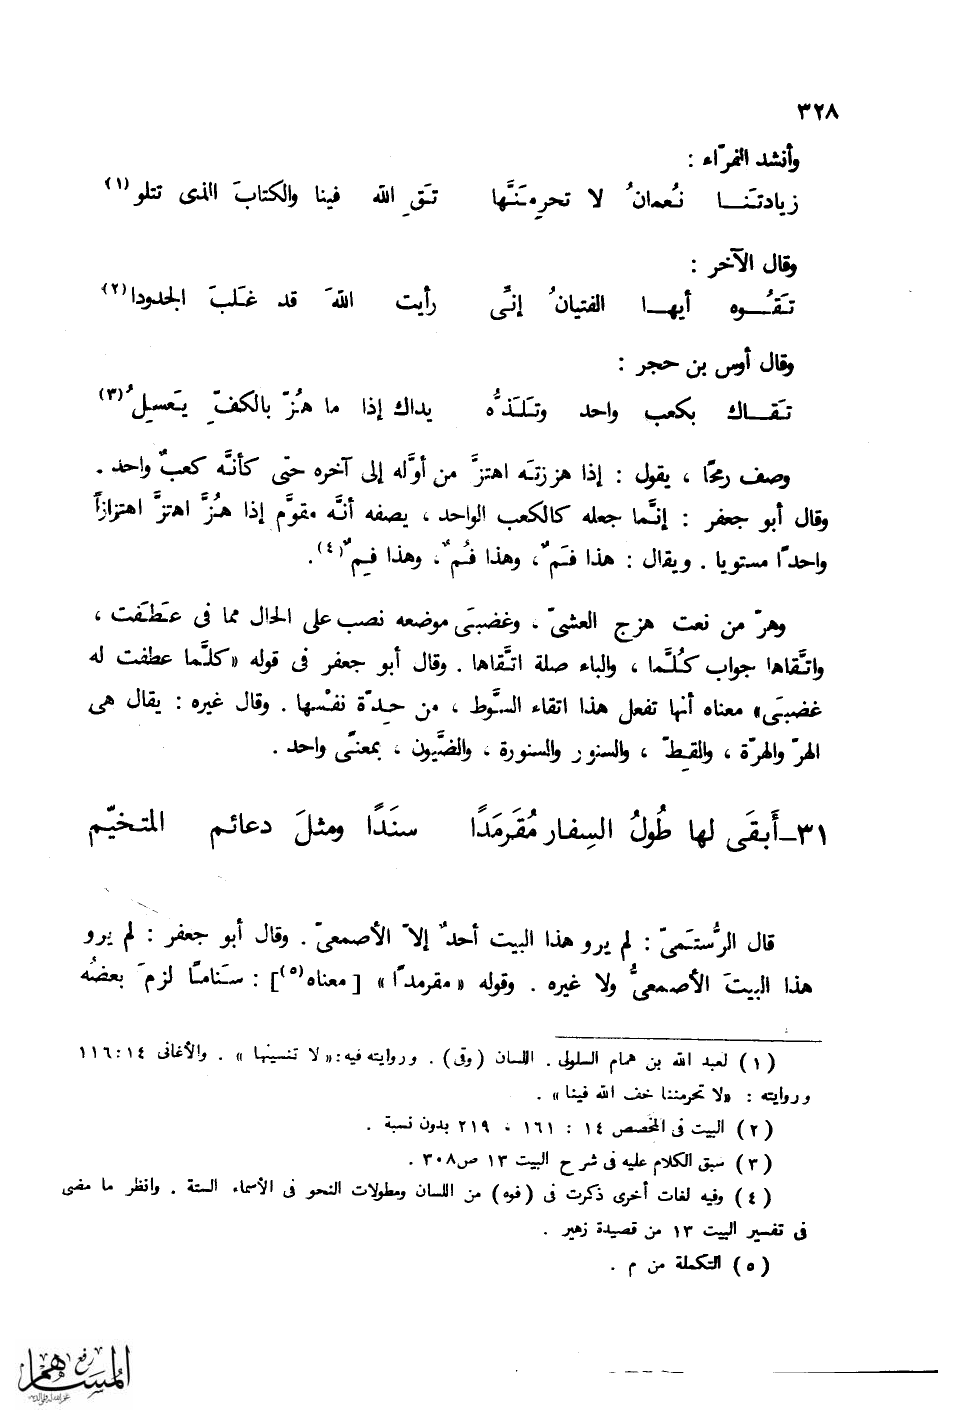 ٣٢٨
وأنشد الفرّاء :
زيادتَنَـا نُعمانُ لا تحرِمَنَّها تَقِ اللهَ فينا والكتابَ الذى تتلو (١)
وقال الآخر :
تَقُـوه أيهـا الفتيانُ إنِّى رأيت اللهَ قد غَلَبَ الجدودا (٢)
وقال أوس بن حجر :
تَقَـاك بكعب واحد وتَلَذُّه يداك إذا ما هُزّ بالكفِّ يَعسِلُ (٣)
وصف رمحًا ، يقول : إذا هززتَه اهتزَّ من أوَّله إلى آخره حتى كأنَّه كعبٌ واحد .
وقال أبو جعفر : إنَّما جعله كالكعب الواحد ، يصفه أنَّه مقوَّم إذا هُزَّ اهتزَّ اهتزازاً
واحدًا مستويا . ويقال : هذا فَمٌ ، وهذا فُمٌ ، وهذا فِمٌ (٤) .
وهرّ من نعت هزج العشىّ ، وغضبَى موضعه نصب على الحال مما فى عَطَفت ،
واتَّقاها جواب كُلَّما ، والباء صلة اتَّقاها . وقال أبو جعفر فى قوله «كلَّما عطفت له
غضبَى» معناه أنها تفعل هذا اتقاء السَّوط ، من حِدّة نفْسها . وقال غيره : يقال هى
الهرّ والهرّة ، والقِطّ ، والسنور والسنورة ، والضَّيون ، بمعنًى واحد .
٣١ــ أَبقَى لها طُولُ السِفار مُقَرمَدًا سنَدًا ومثلَ دعائم المتخيّم
قال الرُّستَمىّ : لم يرو هذا البيت أحدٌ إلاّ الأصمعىّ . وقال أبو جعفر : لم يرو
هذا البيتَ الأصمعىُّ ولا غيره . وقوله « مقرمدًا » [ معناه (٥) ] : سَنامًا لزمَ بعضُه
(١) لعبد الله بن همام السلولى . اللسان (وقى) . وروايته فيه : «لا تنسينها» . والأغانى ١٤ : ١١٦
وروايته : «لا تحرمننا خف الله فينا» .
(٢) البيت فى المخصص ١٤ : ١٦١ ، ٢١٩ بدون نسبة .
(٣) سبق الكلام عليه فى شرح البيت ١٣ ص ٣٠٨ .
(٤) وفيه لغات أخرى ذكرت فى (فوه) من اللسان ومطولات النحو فى الأسماء الستة . وانظر ما مضى
فى تفسير البيت ١٣ من قصيدة زهير .
(٥) التكملة من م .
رفع
المساهم